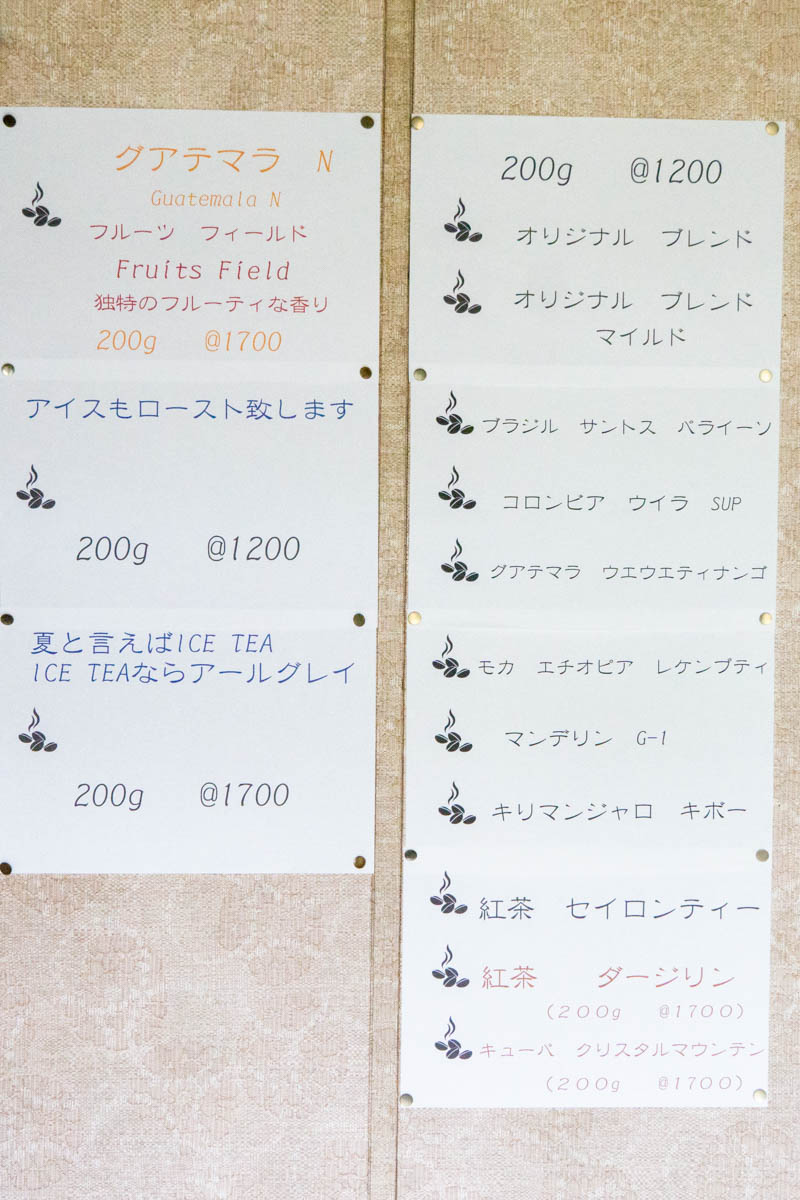 グアテマラ N
Guatemala N
フルーツ フィールド
Fruits Field
独特のフルーティな香り
200g @1700
アイスもロースト致します
200g @1200
夏と言えばICE TEA
ICE TEAならアールグレイ
200g @1700
200g @1200
オリジナル ブレンド
オリジナル ブレンド
マイルド
ブラジル サントス パライーソ
コロンビア ウイラ SUP
グアテマラ ウエウエティナンゴ
モカ エチオピア レケンプティ
マンデリン G-1
キリマンジャロ キボー
紅茶 セイロンティー
紅茶 ダージリン
(200g @1700)
キューバ クリスタルマウンテン
(200g @1700)